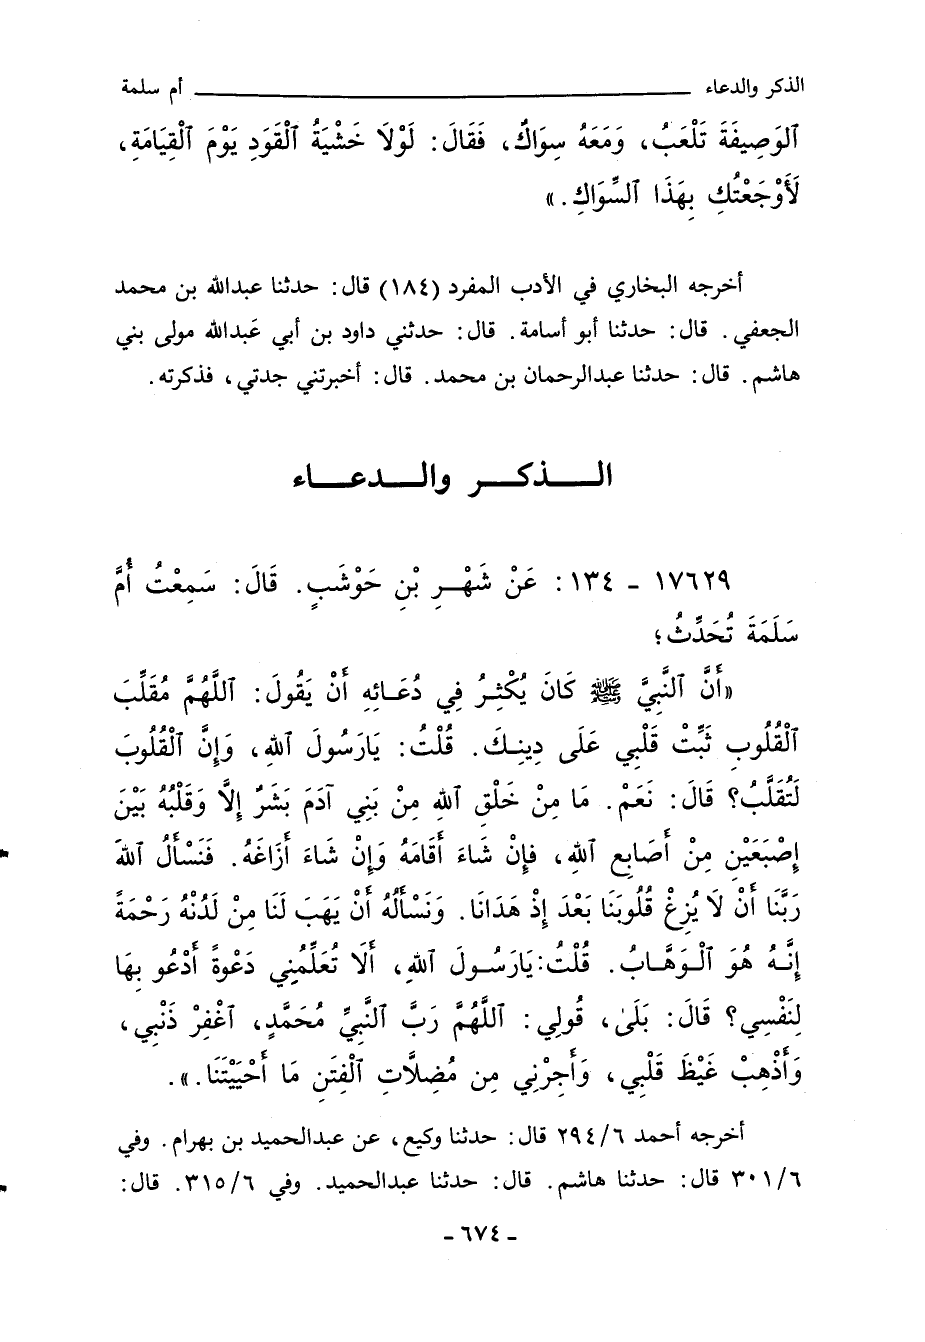 الذكر والدعاء ــــــــــــــــــــ أم سلمة
ٱلوَصِيفَةَ تَلْعَبُ، وَمَعَهُ سِوَاكٌ، فَقَالَ: لَوْلَا خَشْيَةُ ٱلْقَوَدِ يَوْمَ ٱلْقِيَامَةِ،
لَأَوْجَعْتُكِ بِهَذَا ٱلسِّوَاكِ.»
أخرجه البخاري في الأدب المفرد (١٨٤) قال: حدثنا عبدالله بن محمد
الجعفي. قال: حدثنا أبو أسامة. قال: حدثني داود بن أبي عَبدالله مولى بني
هاشم. قال: حدثنا عبدالرحمان بن محمد. قال: أخبرتني جدتي، فذكرته.
الـــذكـــر والـــدعـــاء
١٧٦٢٩ - ١٣٤: عَنْ شَهْرِ بْنِ حَوْشَبٍ. قَالَ: سَمِعْتُ أُمَّ
سَلَمَةَ تُحَدِّثُ؛
«أَنَّ ٱلنَّبِيَّ ﷺ كَانَ يُكْثِرُ فِي دُعَائِهِ أَنْ يَقُولَ: ٱللَّهُمَّ مُقَلِّبَ
ٱلْقُلُوبِ ثَبِّتْ قَلْبِي عَلَى دِينِكَ. قُلْتُ: يَارَسُولَ ٱللهِ، وَإِنَّ ٱلْقُلُوبَ
لَتُقَلَّبُ؟ قَالَ: نَعَمْ. مَا مِنْ خَلْقِ ٱللهِ مِنْ بَنِي آدَمَ بَشَرٌ إِلَّا وَقَلْبُهُ بَيْنَ
إِصْبَعَيْنِ مِنْ أَصَابِعِ ٱللهِ، فَإِنْ شَاءَ أَقَامَهُ وَإِنْ شَاءَ أَزَاغَهُ. فَنَسْأَلُ ٱللهَ
رَبَّنَا أَنْ لَا يُزِغْ قُلُوبَنَا بَعْدَ إِذْ هَدَانَا. وَنَسْأَلُهُ أَنْ يَهَبَ لَنَا مِنْ لَدُنْهُ رَحْمَةً
إِنَّهُ هُوَ ٱلْوَهَّابُ. قُلْتُ: يَارَسُولَ ٱللهِ، أَلَا تُعَلِّمُنِي دَعْوَةً أَدْعُو بِهَا
لِنَفْسِي؟ قَالَ: بَلَىٰ، قُولِي: ٱللَّهُمَّ رَبَّ ٱلنَّبِيِّ مُحَمَّدٍ، ٱغْفِرْ ذَنْبِي،
وَأَذْهِبْ غَيْظَ قَلْبِي، وَأَجِرْنِي مِن مُضِلَّاتِ ٱلْفِتَنِ مَا أَحْيَيْتَنَا.».
أخرجه أحمد ٢٩٤/٦ قال: حدثنا وكيع، عن عبدالحميد بن بهرام. وفي
٣٠١/٦ قال: حدثنا هاشم. قال: حدثنا عبدالحميد. وفي ٣١٥/٦. قال:
- ٦٧٤ -